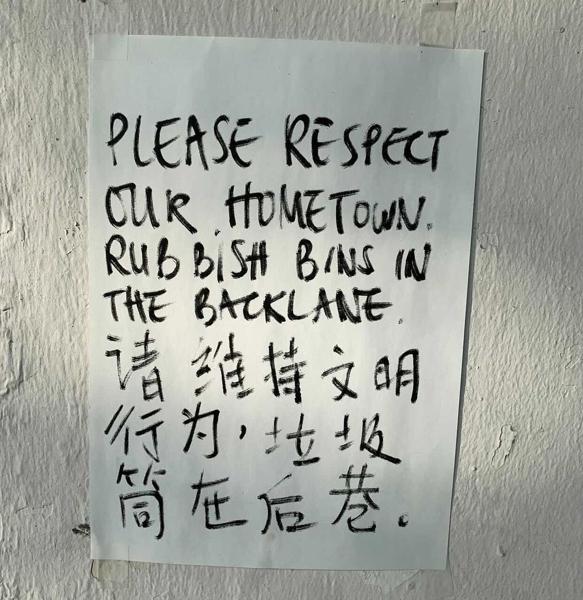 PLEASE RESPECT
OUR HOMETOWN.
RUBBISH BINS IN
THE BACKLANE.
请维持文明
行为，垃圾
筒在后巷。